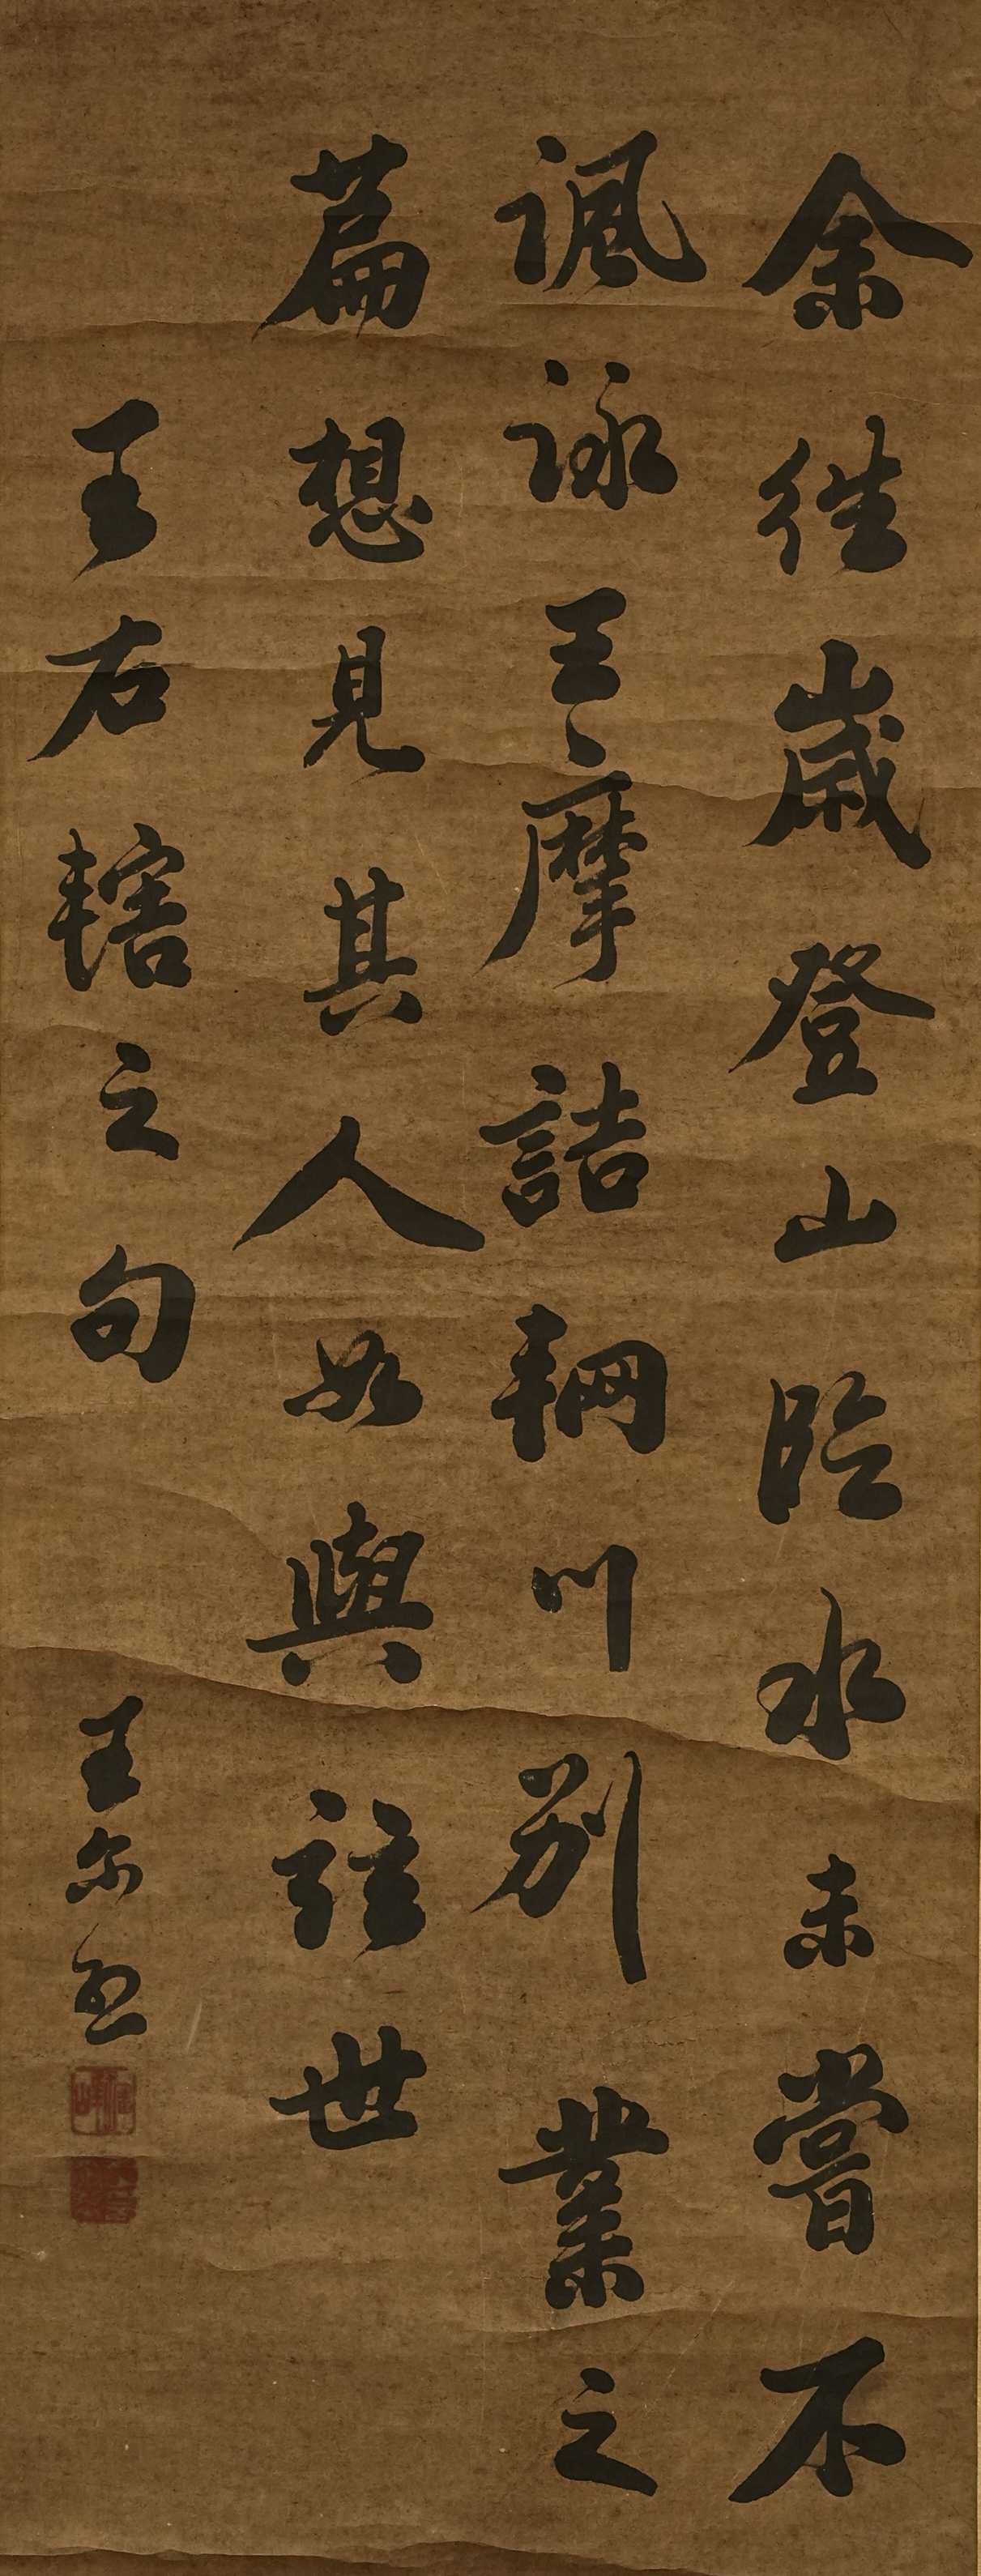 余往歲登山臨水未嘗不
諷詠王摩詰輞川別業之
篇想見其人如與竝世
王右轄之句
王尔烈